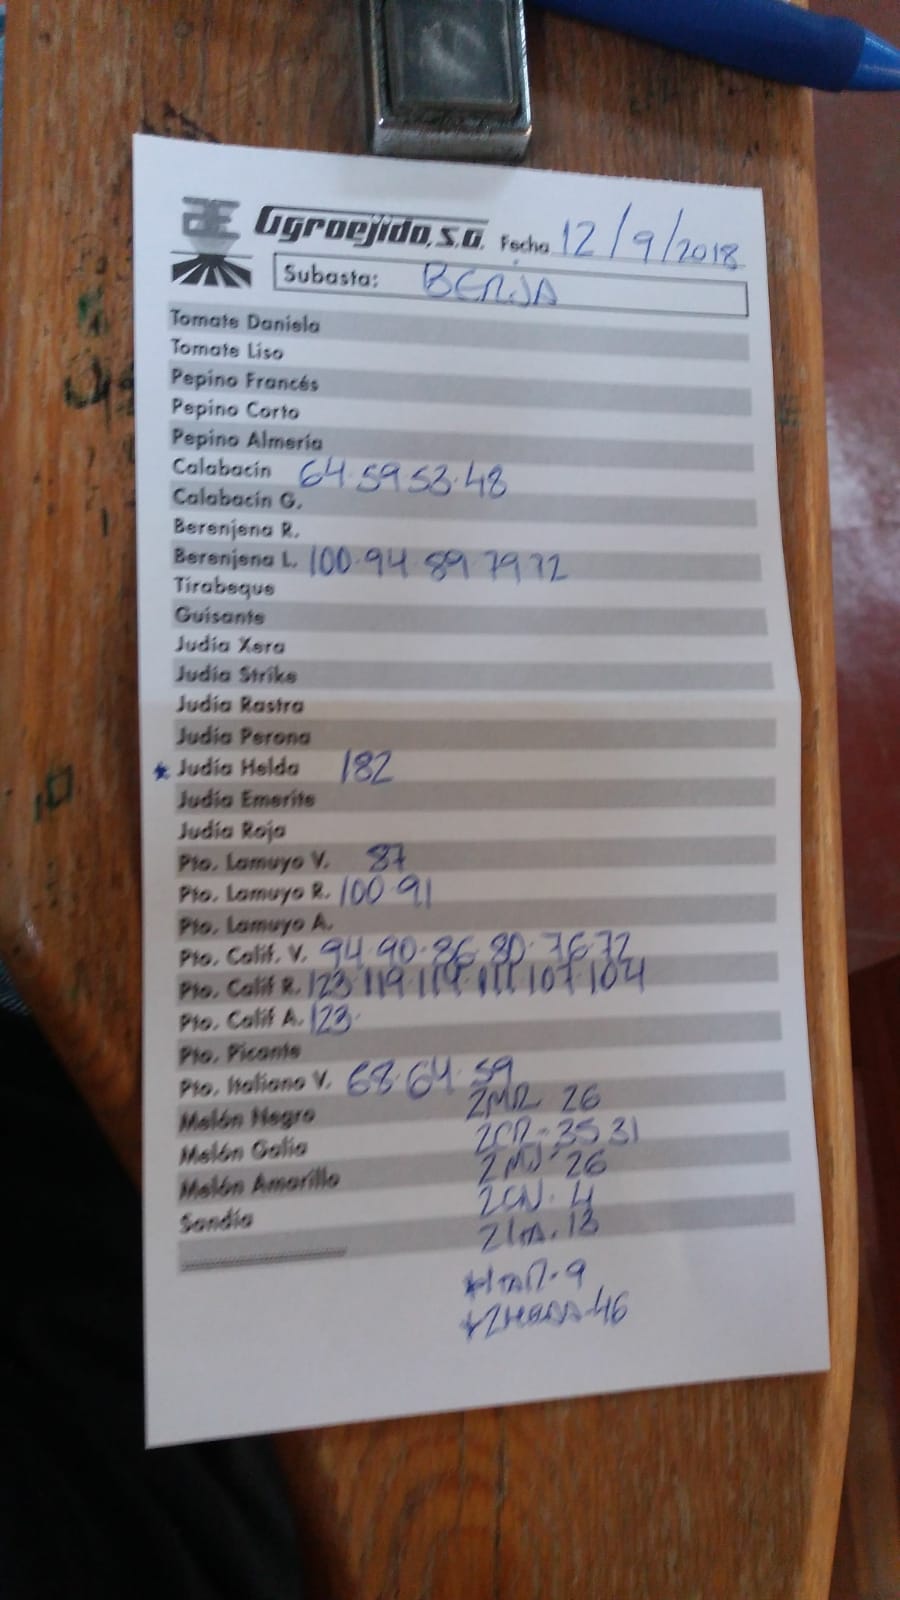 AE Agroejido, S.A. Fecha 12/9/2018
Subasta: BERJA
Tomate Daniela
Tomate Liso
Pepino Francés
Pepino Corto
Pepino Almería
Calabacín 64·59 53·48
Calabacín G.
Berenjena R.
Berenjena L. 100·94·89·79 72
Tirabeque
Guisante
Judía Xera
Judía Strike
Judía Rastra
Judía Perona
* Judía Helda 182
Judía Emerite
Judía Roja
Pto. Lamuyo V. 87
Pto. Lamuyo R. 100·91
Pto. Lamuyo A.
Pto. Calif. V. 94·90·86·80·76·72
Pto. Calif R. 123·119·114·111·107·104
Pto. Calif A. 123·
Pto. Picante
Pto. Italiano V. 68·64·59
Melón Negro 2MR 26
Melón Galia 2CR·35 31
Melón Amarillo 2MJ·26
Sandía 2CN·4
13
9
46